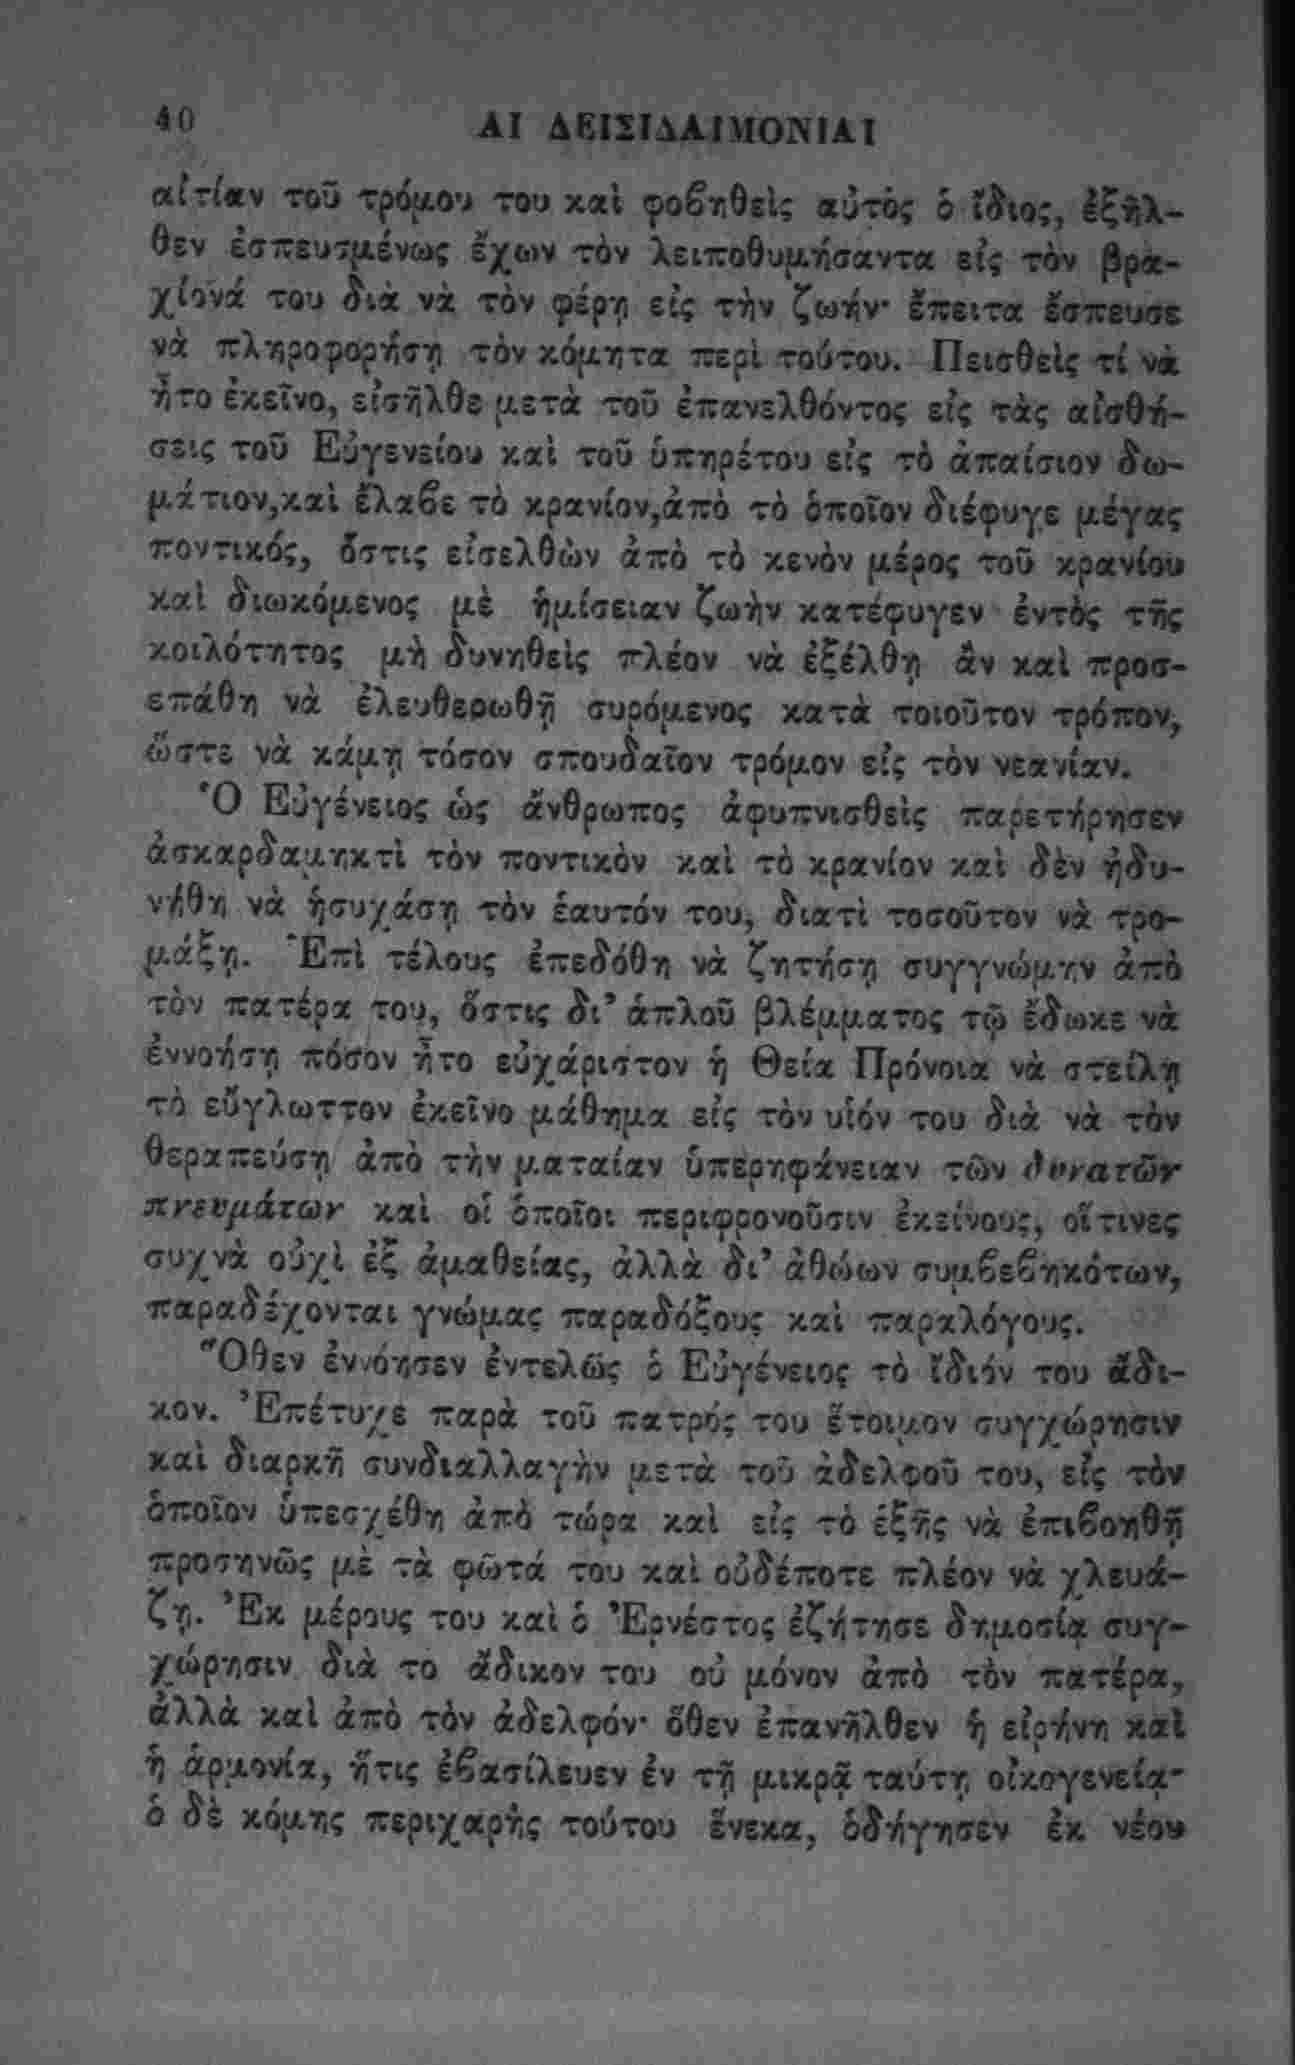 40
ΑΙ ΔΕΙΣΙΔΑΙΜΟΝΙΑΙ
αἰτίαν τοῦ τρόμου του καὶ φοβηθεὶς αὐτὸς ὁ ἴδιος, ἐξῆλ-
θεν ἐσπευσμένως ἔχων τὸν λειποθυμήσαντα εἰς τὸν βρα-
χίονά του διὰ νὰ τὸν φέρῃ εἰς τὴν ζωήν· ἔπειτα ἔσπευσε
νὰ πληροφορήσῃ τὸν κόμητα περὶ τούτου. Πεισθεὶς τί νὰ
ἦτο ἐκεῖνο, εἰσῆλθε μετὰ τοῦ ἐπανελθόντος εἰς τὰς αἰσθή-
σεις τοῦ Εὐγενείου καὶ τοῦ ὑπηρέτου εἰς τὸ ἀπαίσιον δω-
μάτιον,καὶ ἔλαβε τὸ κρανίον,ἀπὸ τὸ ὁποῖον διέφυγε μέγας
ποντικός, ὅστις εἰσελθὼν ἀπὸ τὸ κενὸν μέρος τοῦ κρανίου
καὶ διωκόμενος μὲ ἡμίσειαν ζωὴν κατέφυγεν ἐντὸς τῆς
κοιλότητος μὴ δυνηθεὶς πλέον νὰ ἐξέλθῃ ἂν καὶ προσ-
επάθη νὰ ἐλευθερωθῇ συρόμενος κατὰ τοιοῦτον τρόπον,
ὥστε νὰ κάμῃ τόσον σπουδαῖον τρόμον εἰς τὸν νεανίαν.
Ὁ Εὐγένειος ὡς ἄνθρωπος ἀφυπνισθεὶς παρετήρησεν
ἀσκαρδαμηκτὶ τὸν ποντικὸν καὶ τὸ κρανίον καὶ δὲν ἠδυ-
νήθη νὰ ἡσυχάσῃ τὸν ἑαυτόν του, διατὶ τοσοῦτον νὰ τρο-
μάξῃ. Ἐπὶ τέλους ἐπεδόθη νὰ ζητήσῃ συγγνώμην ἀπὸ
τὸν πατέρα του, ὅστις δι’ ἁπλοῦ βλέμματος τῷ ἔδωκε νὰ
ἐννοήσῃ πόσον ἦτο εὐχάριστον ἡ Θεία Πρόνοια νὰ στείλῃ
τὸ εὔγλωττον ἐκεῖνο μάθημα εἰς τὸν υἱόν του διὰ νὰ τὸν
θεραπεύσῃ ἀπὸ τὴν ματαίαν ὑπερηφάνειαν τῶν δυνατῶν
πνευμάτων καὶ οἱ ὁποῖοι περιφρονοῦσιν ἐκείνους, οἵτινες
συχνὰ οὐχὶ ἐξ ἀμαθείας, ἀλλὰ δι’ ἀθώων συμβεβηκότων,
παραδέχονται γνώμας παραδόξους καὶ παραλόγους.
Ὅθεν ἐννόησεν ἐντελῶς ὁ Εὐγένειος τὸ ἴδιόν του ἄδι-
κον. Ἐπέτυχε παρὰ τοῦ πατρός του ἕτοιμον συγχώρησιν
καὶ διαρκῆ συνδιαλλαγὴν μετὰ τοῦ ἀδελφοῦ του, εἰς τὸν
ὁποῖον ὑπεσχέθη ἀπὸ τώρα καὶ εἰς τὸ ἑξῆς νὰ ἐπιβοηθῇ
προσηνῶς μὲ τὰ φῶτά του καὶ οὐδέποτε πλέον νὰ χλευά-
ζῃ. Ἐκ μέρους του καὶ ὁ Ἐρνέστος ἐζήτησε δημοσίᾳ συγ-
χώρησιν διὰ το ἄδικον του οὐ μόνον ἀπὸ τὸν πατέρα,
ἀλλὰ καὶ ἀπὸ τὸν ἀδελφόν· ὅθεν ἐπανῆλθεν ἡ εἰρήνη καὶ
ἡ ἁρμονία, ἥτις ἐβασίλευεν ἐν τῇ μικρᾷ ταύτῃ οἰκογενείᾳ·
ὁ δὲ κόμης περιχαρὴς τούτου ἕνεκα, ὁδήγησεν ἐκ νέου